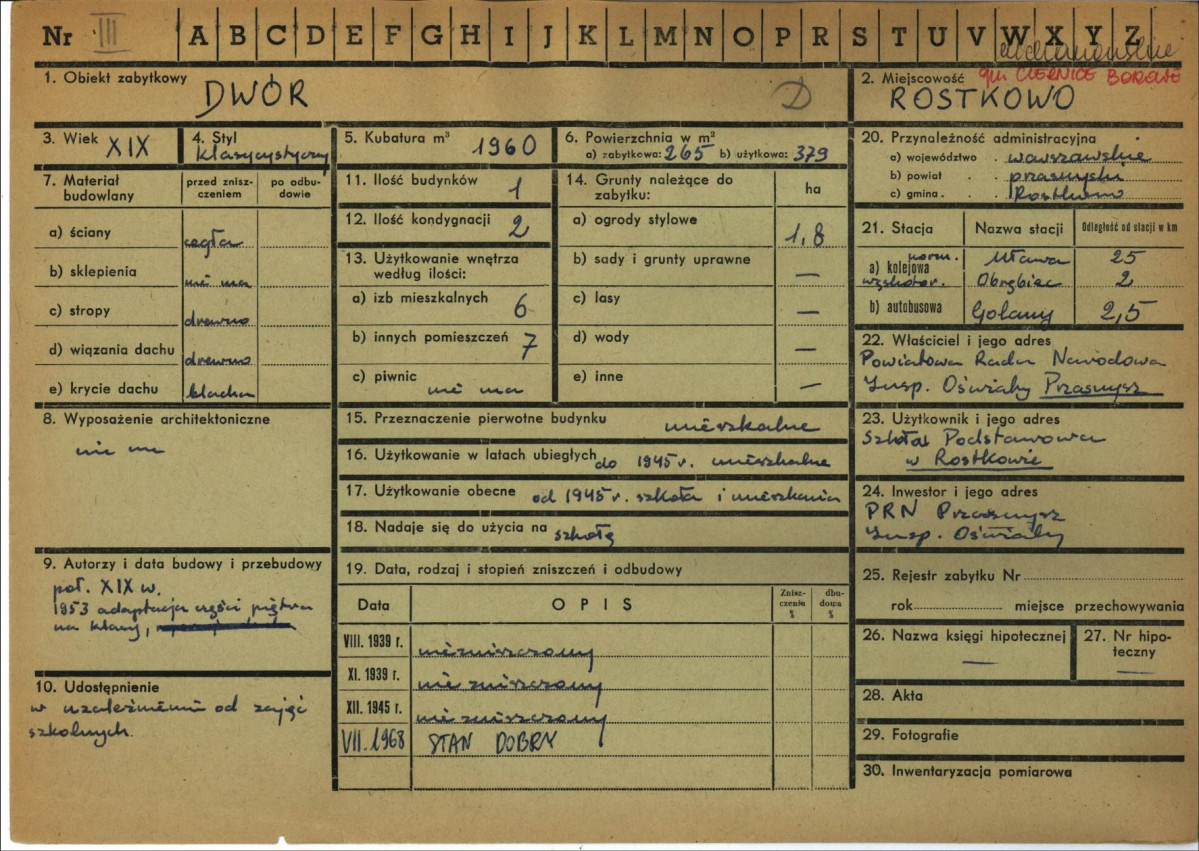 Nr III A B C D E F G H I J K L M N O P R S T U V W X Y Z
ciechanowskie
1. Obiekt zabytkowy
DWÓR
D
2. Miejscowość
gm CZERNICE BOROWE
ROSTKOWO
3. Wiek XIX
4. Styl
klasycystyczny
5. Kubatura m³ 1960
6. Powierzchnia w m²
a) zabytkowa: 265 b) użytkowa: 379
7. Materiał budowlany
przed znisz-czeniem
po odbu-dowie
a) ściany cegła
b) sklepienia nie ma
c) stropy drewno
d) wiązania dachu drewno
e) krycie dachu blacha
8. Wyposażenie architektoniczne
nie ma
9. Autorzy i data budowy i przebudowy
poł. XIX w.
1953 adaptacja części piętra
na klasy,
10. Udostępnienie
w uzależnieniu od zajęć
szkolnych.
11. Ilość budynków 1
12. Ilość kondygnacji 2
13. Użytkowanie wnętrza
według ilości:
a) izb mieszkalnych 6
b) innych pomieszczeń 7
c) piwnic nie ma
14. Grunty należące do
zabytku:
ha
a) ogrody stylowe 1,8
b) sady i grunty uprawne —
c) lasy —
d) wody —
e) inne —
15. Przeznaczenie pierwotne budynku mieszkalne
16. Użytkowanie w latach ubiegłych do 1945 r. mieszkalne
17. Użytkowanie obecne od 1945 r. szkoła i mieszkania
18. Nadaje się do użycia na szkołę
19. Data, rodzaj i stopień zniszczeń i odbudowy
Data
OPIS
Znisz-czenia %
dbu-dowa %
VIII. 1939 r. niezniszczony
XI. 1939 r. nie zniszczony
XII. 1945 r. nie zniszczony
VII. 1968 STAN DOBRY
20. Przynależność administracyjna
a) województwo . warszawskie
b) powiat . . przasnyski
c) gmina . . Rostkowo
21. Stacja
Nazwa stacji
Odległość od stacji w km
a) kolejowa
norm. Mława 25
wąskotor. Obrębiec 2
b) autobusowa Golany 2,5
22. Właściciel i jego adres
Powiatowa Rada Narodowa
Insp. Oświaty Przasnysz
23. Użytkownik i jego adres
Szkoła Podstawowa
w Rostkowie
24. Inwestor i jego adres
PRN Przasnysz
Insp. Oświaty
25. Rejestr zabytku Nr
rok miejsce przechowywania
26. Nazwa księgi hipotecznej
—
27. Nr hipo-teczny
—
28. Akta
29. Fotografie
30. Inwentaryzacja pomiarowa